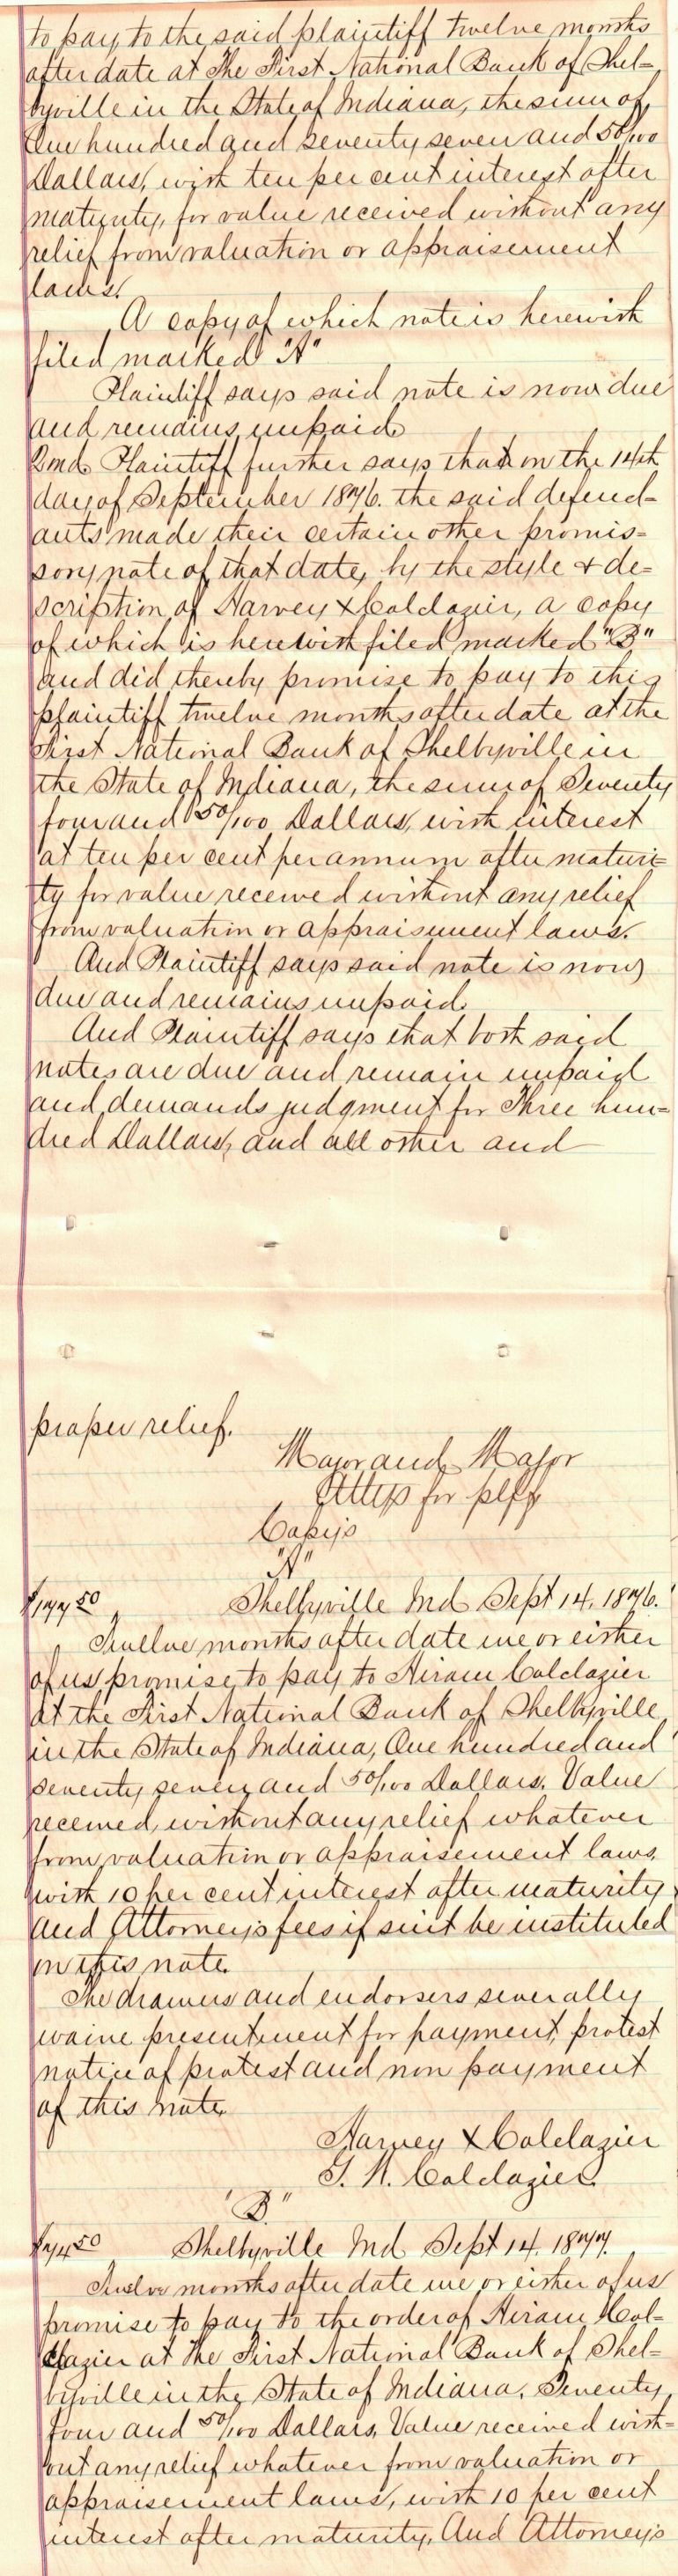 to pay to the said plaintiff twelve months
after date at The First National Bank of Shel=
byville in the State of Indiana, the sum of
One hundred and seventy seven and 50/100
Dollars, with ten per cent interest after
maturity, for value received without any
relief from valuation or appraisement
laws.
A copy of which note is herewith
filed marked "A"
Plaintiff says said note is now due
and remains unpaid
2nd. Plaintiff further says that on the 14th
day of September 1876. the said defend=
ants made their certain other promis=
sory note of that date, by the style & de=
scription of Harvey X Colclazier, a copy
of which is herewith filed marked "B"
and did thereby promise to pay to this
plaintiff twelve months after date at the
First National Bank of Shelbyville in
the State of Indiana, the sum of Seventy
four and 50/100 Dollars, with interest
at ten per cent per annum after maturi=
ty for value received without any relief
from valuation or appraisement laws.
And Plaintiff says said note is now
due and remains unpaid.
And Plaintiff says that both said
notes are due and remain unpaid
and demands judgment for Three hun=
dred Dollars, and all other and
proper relief.
Major and Major
Attys for plff
Copys
"A"
$177 50 Shelbyville Ind Sept 14, 1876.
Twelve months after date we or either
of us promise to pay to Hiram Colclazier
at the First National Bank of Shelbyville
in the State of Indiana, One hundred and
seventy seven and 50/100 Dollars. Value
received, without any relief whatever
from valuation or appraisement laws,
with 10 per cent interest after maturity
and Attorneys fees if suit be instituted
on this note.
The drawers and endorsers severally
waive presentment for payment, protest
notice of protest and non payment
of this note
Harvey X Colclazier
G. N. Colclazier
"B"
$74 50 Shelbyville Ind Sept 14. 1877.
Twelve months after date we or either of us
promise to pay to the order of Hiram Col=
clazier at The First National Bank of Shel=
byville in the State of Indiana. Seventy
four and 50/100 Dollars, Value received with=
out any relief whatever from valuation or
appraisement laws, with 10 per cent
interest after maturity, And Attorneys